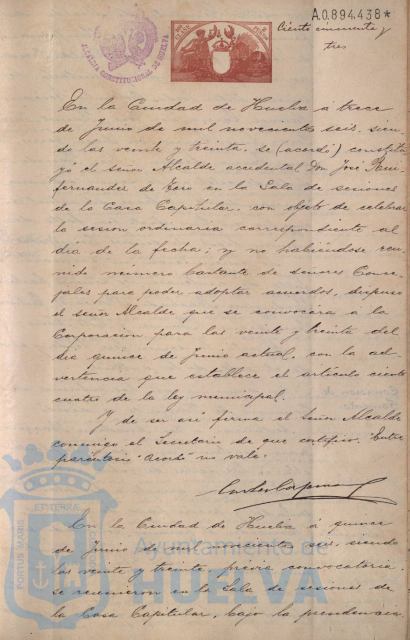 A.0.894.438*
Ciento cincuenta y
tres
ALCALDIA CONSTITUCIONAL DE HUELVA
En la Ciudad de Huelva á trece
de Junio de mil novecientos seis, sien-
do las veinte y treinta, se (acordó) constitu-
yó el señor Alcalde accidental Don José
fernandez de en la Sala de sesiones
de la Casa Capitular, con objeto de celebrar
la sesion ordinaria correspondiente al
dia de la fecha; y no habiendose reu-
nido número bastante de señores Conce-
jales para poder adoptar acuerdos, dispuso
el señor Alcalde que se convocára á la
Corporacion para las veinte y treinta del
dia quince de Junio actual, con la ad-
vertencia que establece el articulo ciento
cuatro de la ley municipal.
Y de ser así firma el Señor Alcalde
conmigo el Secretario de que certifico. Entre
parentesis "acordó" no vale.
En la Ciudad de Huelva á quince
de Junio de mil novecientos seis, siendo
las veinte y treinta, previa convocatoria,
se reunieron en la Sala de sesiones de
la Casa Capitular, bajo la presidencia
PORTUS MARIS
ET TERRÆ
Ayuntamiento de
HUELVA